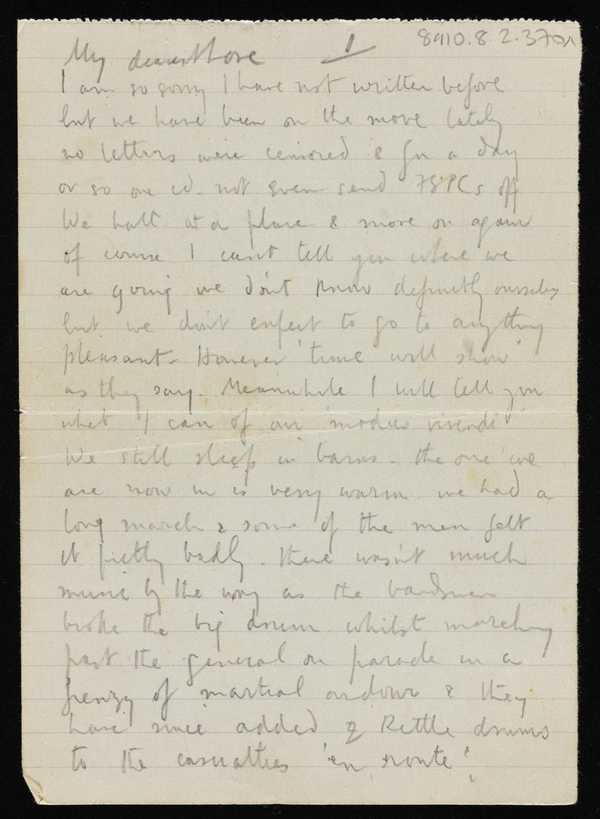 My dearest Love 1 8910.8
I am so sorry I have not written before
but we have been on the move lately
no letters were censored & for a day
or so one cd. not even send FSPCs off
We halt at a place & move on again
of course I can't tell you where we
are going we don't know definitely ourselves
but we don't expect to go to anything
pleasant - However 'time will show'
as they say. Meanwhile I will tell you
what I can of our 'modus vivendi'
We still sleep in barns - the one we
are now in is very warm we had a
long march & some of the men felt
it pretty badly. There wasn't much
music by the way as the bandsmen
broke the big drum whilst marching
past the general on parade in a
frenzy of martial ardour & they
have since added 2 Kettle drums
to the casualties 'en route'.